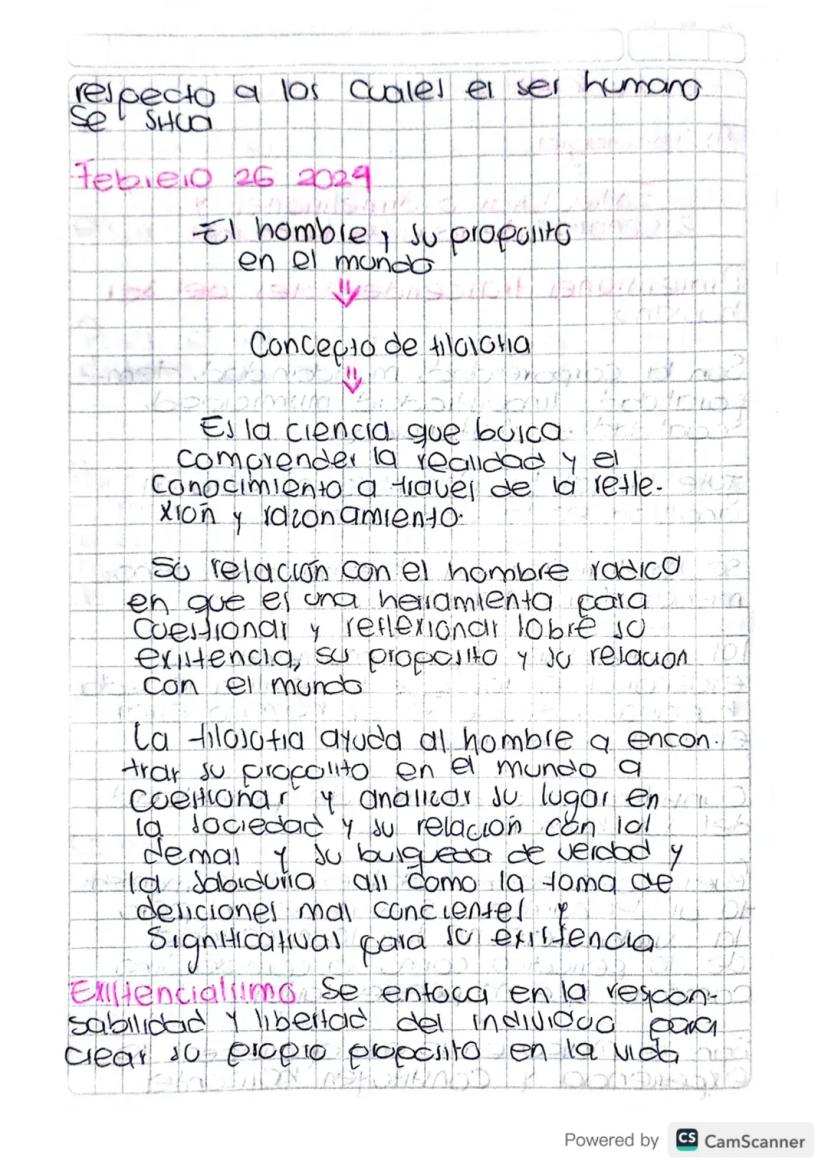 respecto a los cuales el ser humano
se sitúa
Febrero 26 2024
El hombre y su proposito
en el mundo
Concepto de filosofia
Es la ciencia que busca
comprender la realidad y el
conocimiento a traves de la refle-
xión y razonamiento.
Su relación con el hombre radica
en que es una herramienta para
cuestionar y reflexionar sobre su
existencia, su proposito y su relacion
con el mundo
La filosofia ayuda al hombre a encon-
trar su proposito en el mundo a
cuestionar y analizar su lugar en
la sociedad y su relación con los
demas y su busqueda de verdad y
la sabiduria asi como la toma de
desiciones mas concientes y
significativas para su existencia
Existencialismo Se enfoca en la respon-
sabilidad y libertad del individuo para
crear su propio proposito en la vida
Powered by CS CamScanner